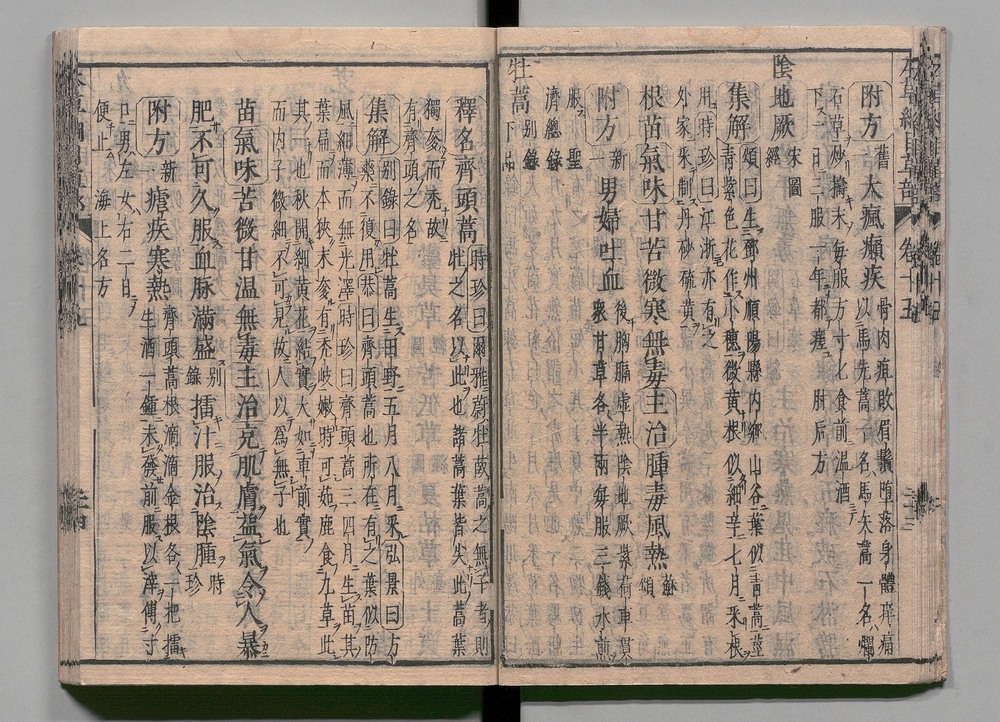 附方 舊一 大瘋癩疾 骨肉疽敗眉鬚墮落身體痒痛
以馬先蒿一名馬矢蒿一名爛
石草炒擣末每服方寸匕食前温酒
下一日三服一年都瘥 肘后方
陰地厥 宋圖經
集解 頌曰生鄧州順陽縣內鄉山谷葉似青蒿莖
青紫色花作小穗微黃根似細辛七月采根
用時珍曰江浙亦有之
外家采制丹砂硫黃
根苗氣味甘苦微寒無毒主治腫毒風熱 蘇頌
附方 新一 男婦吐血 後胸膈虛熱陰地厥紫荷車貫
衆甘草各半兩每服三錢水煎
服 聖
濟總錄
牡蒿 别錄下品
釋名齊頭蒿 時珍曰爾雅蔚牡菣蒿之無子者則
牡之名以此也諸蒿葉皆尖此蒿葉
獨奓而秃故
有齊頭之名
集解 别錄曰牡蒿生田野五月八月采弘景曰方
藥不復用恭曰齊頭蒿也所在有之葉似防
風細薄而無光澤時珍曰齊頭蒿三四月生苗其
葉扁而本狹末奓有秃岐嫩時可茹鹿食九草此
其一也秋開細黃花結實大如車前實
而內子微細不可見故人以爲無子也
苗氣味苦微甘温無毒主治充肌膚益氣令人暴
肥不可久服血脉滿盛 别錄 擂汁服治陰腫 時珍
附方 新一 瘧疾寒熱 齊頭蒿根滴滴金根各一把擂
生酒一鍾未發前服以滓傅寸
口男左女右二日
便止 海上名方